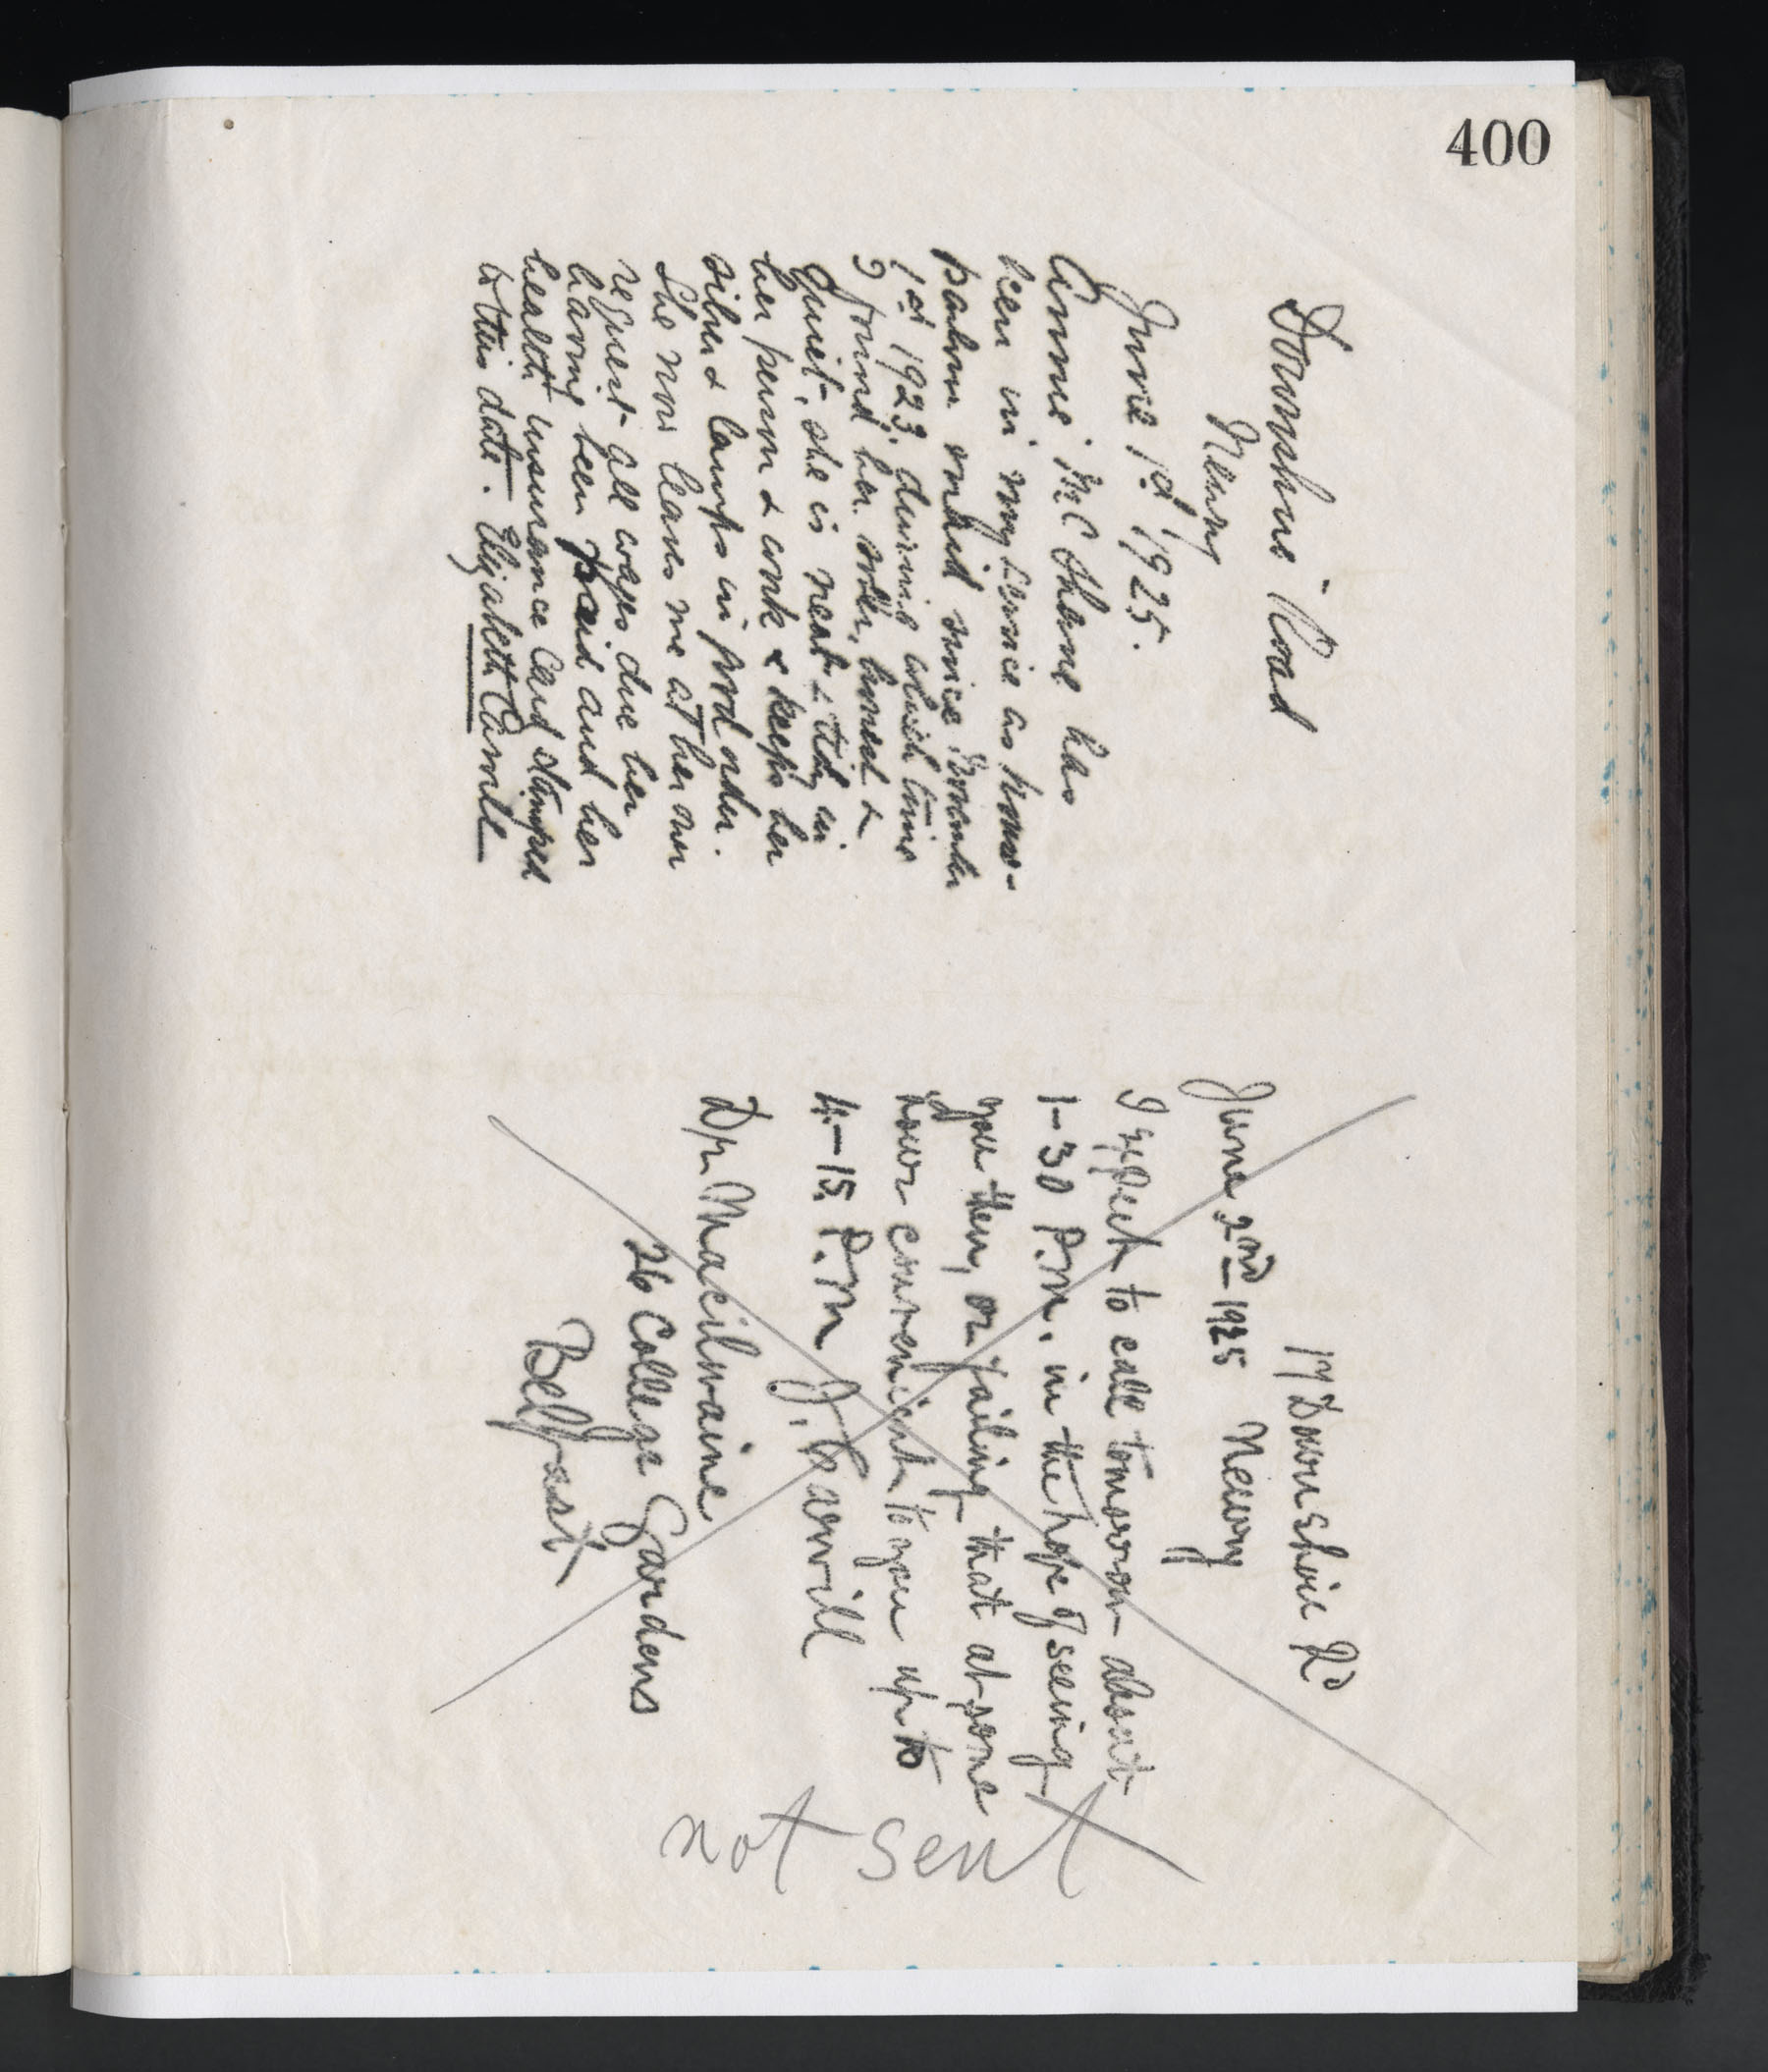 400
Downshire Road
Newry
June 1st 1925.
Annie McShane has
been in my service as house-
parlour maid since November
1st 1923, during which time
I found her sober, honest &
quiet, she is neat & tidy in
her person & work & keeps her
silver & lamps in good order.
She now leaves me at her own
request all wages due her
having been paid and her
health insurance card stamped
to this date. Elizabeth Carvill
17 Downshire Rd
June 2nd 1925 Newry
I expect to call tomorrow about
1-30 P.M. in the hope of seeing
you then, or failing that at some
hour convenient to you up to
4-15 P.M J. Carvill
Dr. MacIlwaine
26 College Gardens
Belfast
not sent